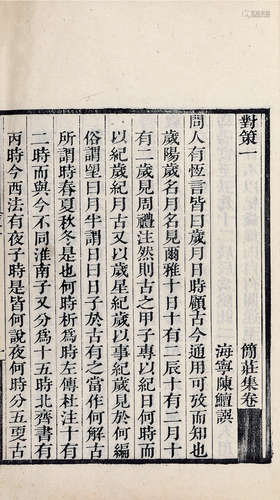 對策一
簡莊集卷
海寧陳鱣譔
問人有恆言皆曰歲月日時顧古今通用可攷而知也
歲陽歲名月名見爾雅十日十有二辰十有二月十
有二歲見周禮注然則古之甲子專以紀日何時而
以紀歲紀月古又以歲星紀歲以事紀歲見於何編
俗謂望曰月半謂日曰子於古有之當作何解古
所謂時春夏秋冬是也何時析爲時左傳杜注十有
二時而與今不同淮南子又分爲十五時北齊書有
丙時今西法有夜子時是皆何說夜何時分五叓古